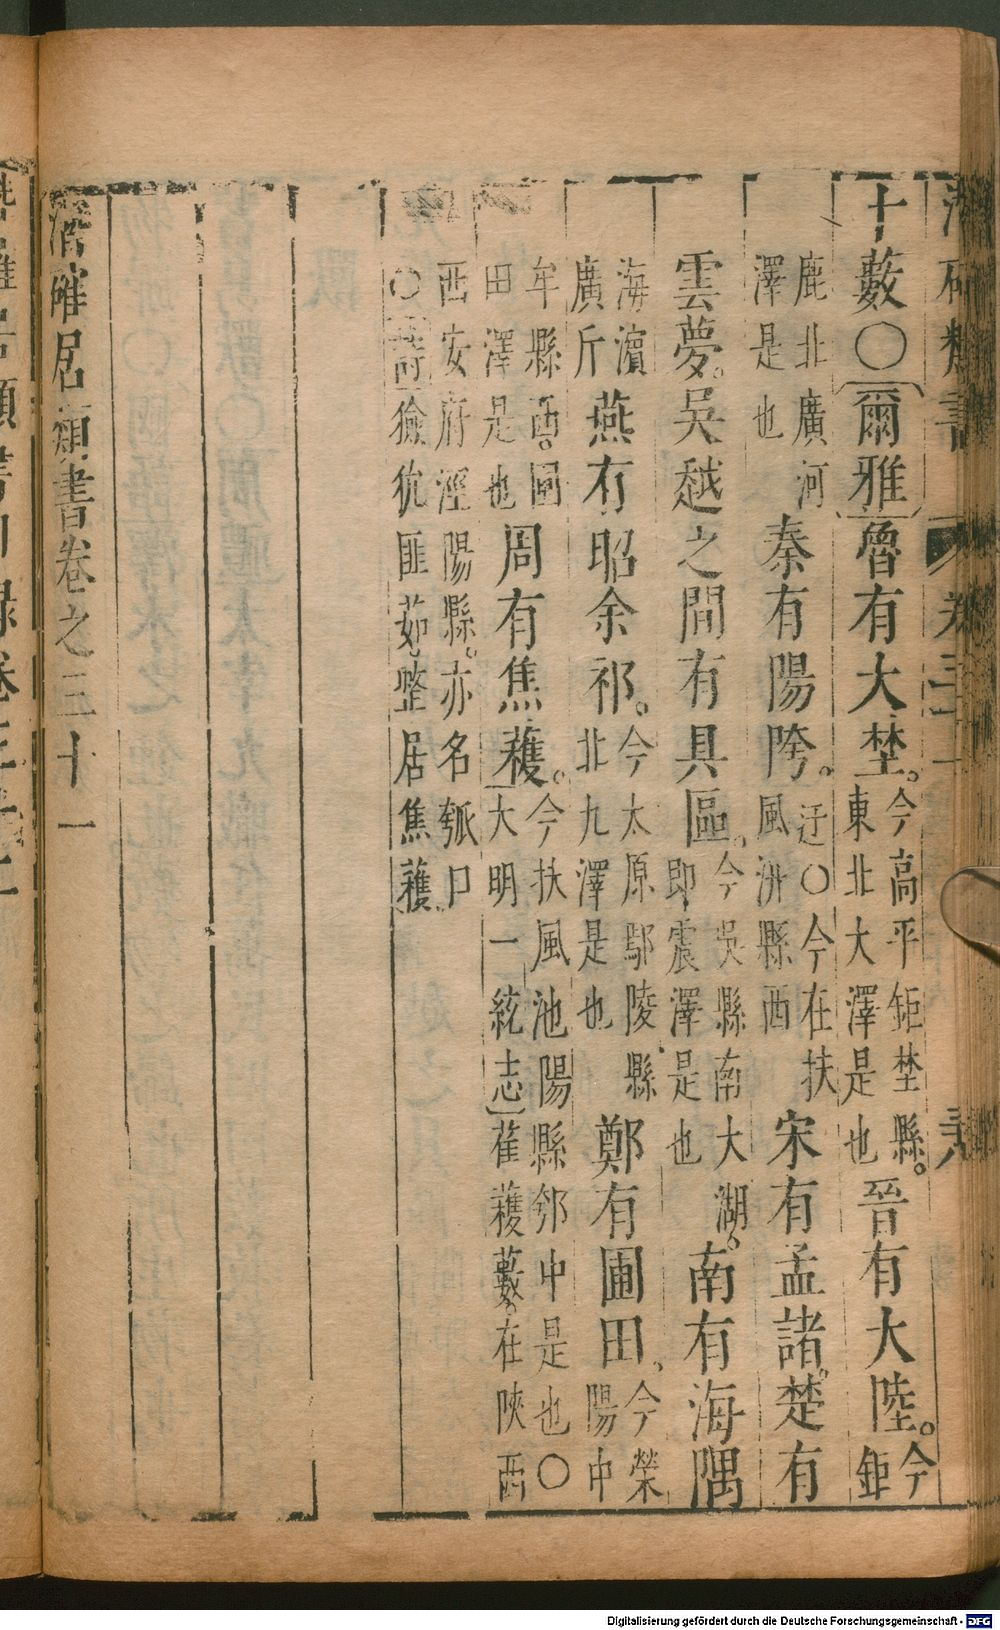 十藪〇爾雅魯有大埜。今高平鉅埜縣。東北大澤是也晉有大陸。今鉅
鹿北廣河澤是也秦有陽陓。迂〇今在扶風汧縣西宋有孟諸。楚有
雲夢。吳越之間有具區。今吳縣南大湖。即震澤是也南有海隅
海濱廣斥燕有昭余祁。今太原鄔陵縣北九澤是也鄭有圃田。今滎陽中
牟縣西。圃田澤是也周有焦穫。今扶風池陽縣瓠中是也〇大明一統志雈穫藪。在陝西
西安府涇陽縣。亦名瓠口〇詩獫狁匪茹。整居焦穫。
潛確居類書卷之三十一
Digitalisierung gefördert durch die Deutsche Forschungsgemeinschaft - DFG